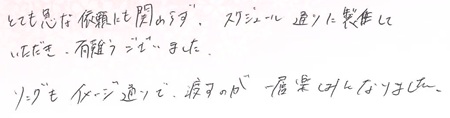 とても急な依頼にも関わらず、スケジュール通りに製作して
いただき、有難うございました。
リングもイメージ通りで、渡すのが一層楽しみになりました。